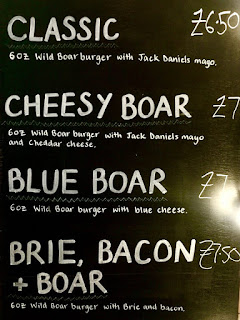 CLASSIC £6.50
6oz Wild Boar burger with Jack Daniels mayo.
CHEESY BOAR £7
6oz Wild Boar burger with Jack Daniels mayo
and Cheddar cheese.
BLUE BOAR £7
6oz Wild Boar burger with blue cheese.
BRIE, BACON £7.50
+ BOAR
6oz Wild Boar burger with Brie and bacon.